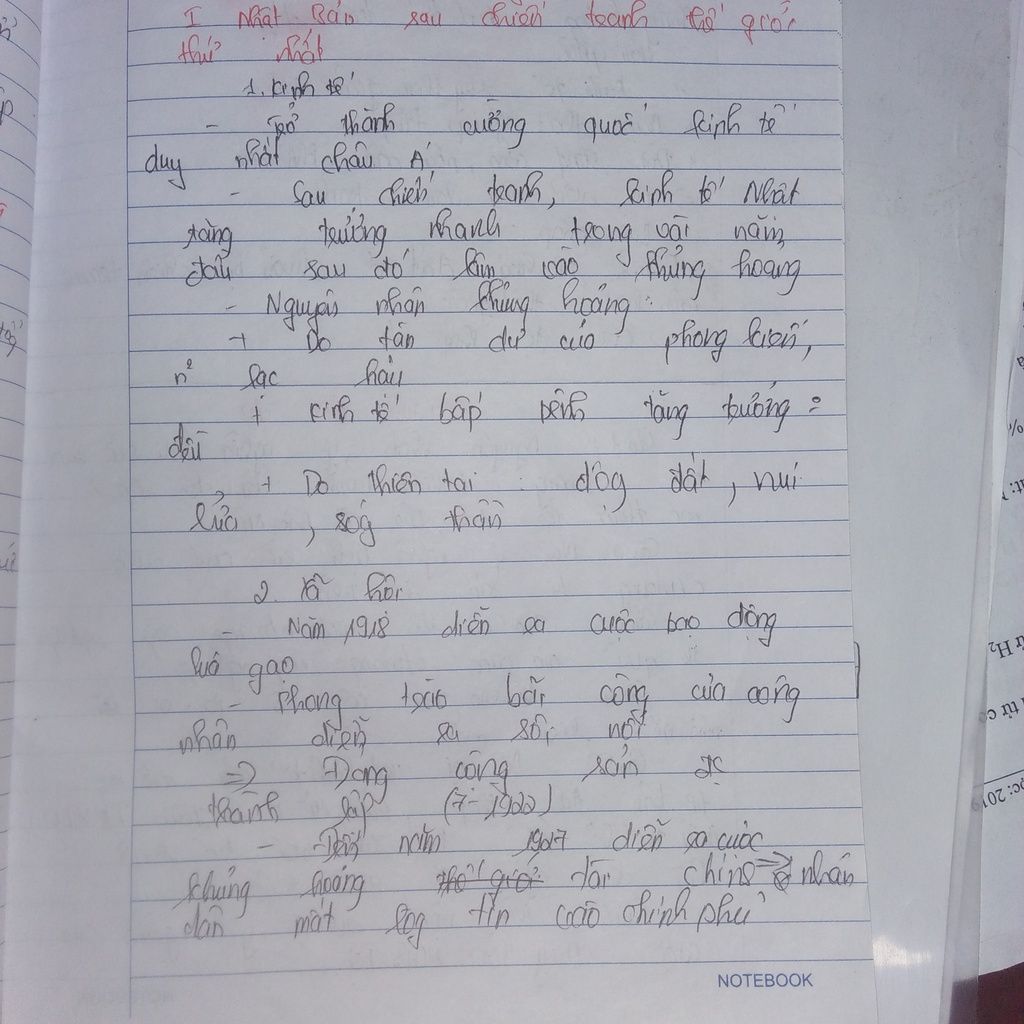 I Nhật Bản sau chiến tranh thế giới
thứ nhất
1. Kinh tế
- Trở thành cường quốc kinh tế
duy nhất châu Á
- Sau chiến tranh, kinh tế Nhật
tăng trưởng nhanh trong vài năm
đầu sau đó lâm vào khủng hoảng
- Nguyên nhân khủng hoảng:
+ Do tàn dư của phong kiến,
n² lạc hậu
+ Kinh tế bấp bênh tăng trưởng
đều
+ Do thiên tai: độg đất, núi
lửa, sóg thần
2. Xã hội
- Năm 1918 diễn ra cuộc bạo động
lúa gạo
- Phong trào bãi công của công
nhân diễn ra sôi nổi
=> Đảng cộng sản đc
thành lập (7-1922)
- năm 1927 diễn ra cuộc
khủng hoảng thế giới tài chính => nhân
dân mất lòg tin vào chính phủ
NOTEBOOK